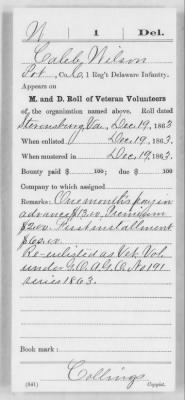 N | 1 | Del.
Caleb Nilson
Pvt., Co. C, 1 Reg't Delaware Infantry.
Appears on
M. and D. Roll of Veteran Volunteers
of the organization named above. Roll dated
Stevensburg Va., Dec. 19, 1863.
When enlisted Dec. 19, 1863.
When mustered in Dec. 19, 1863.
Bounty paid $ 100; due $ 100
Company to which assigned
Remarks: One months pay in
advance $13.00. Premium
$2.00. First installment
$60.00.
Re-enlisted as Vet. Vol.
under G.O. A.G.O. No 191
series 1863.
Book mark:
Collings
(341) Copyist.